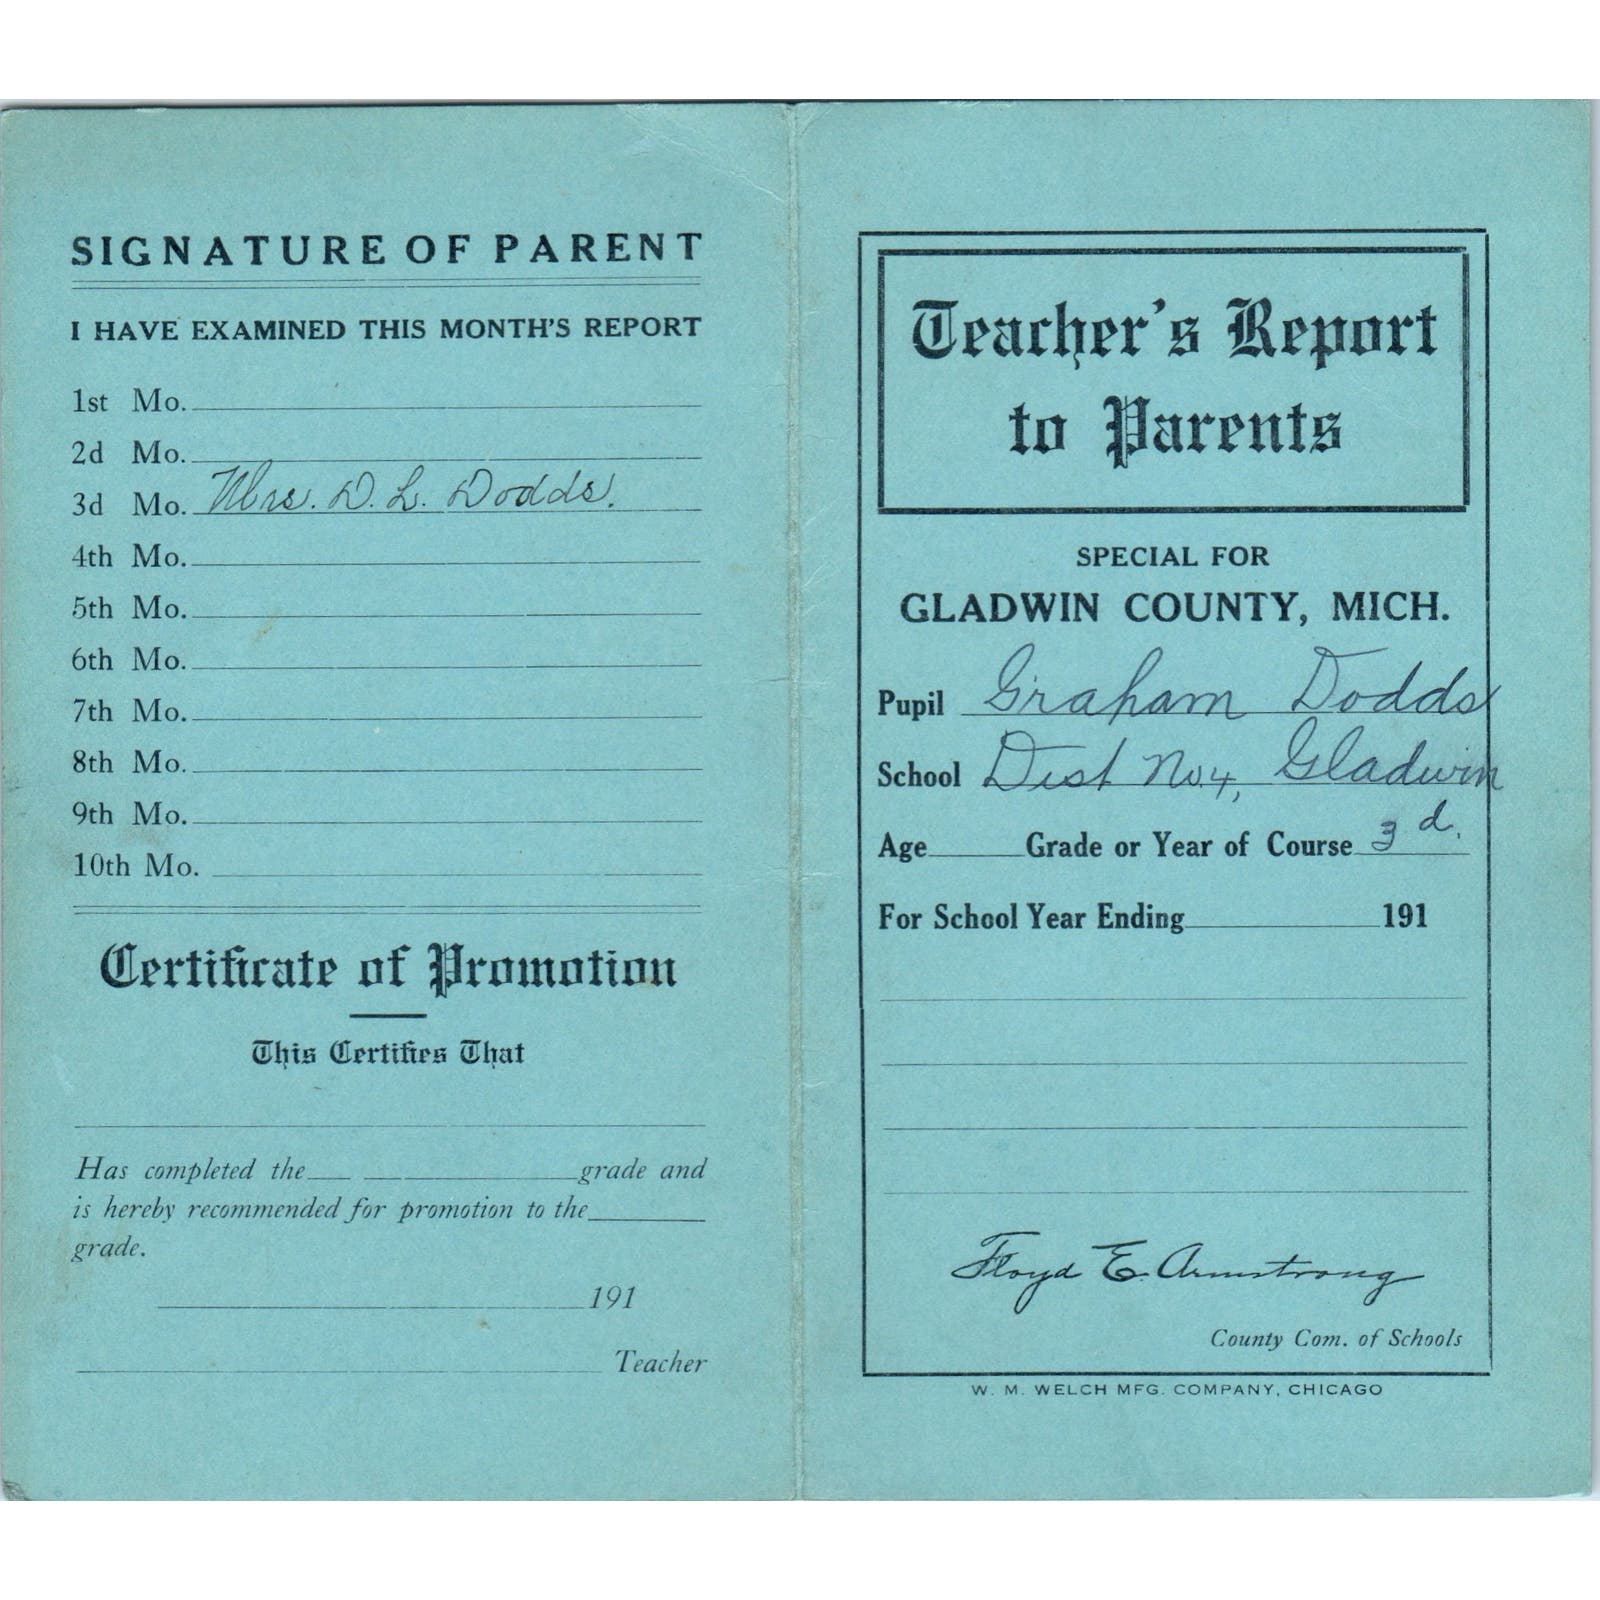 SIGNATURE OF PARENT
I HAVE EXAMINED THIS MONTH'S REPORT
1st Mo.
2d Mo.
3d Mo. Mrs. D. L. Dodds.
4th Mo.
5th Mo.
6th Mo.
7th Mo.
8th Mo.
9th Mo.
10th Mo.
Certificate of Promotion
This Certifies That
Has completed the grade and
is hereby recommended for promotion to the
grade.
191
Teacher
Teacher's Report
to Parents
SPECIAL FOR
GLADWIN COUNTY, MICH.
Pupil Graham Dodds
School Dist No. 4, Gladwin
Age Grade or Year of Course 3 d.
For School Year Ending 191
Floyd E. Armstrong
County Com. of Schools
W. M. WELCH MFG. COMPANY, CHICAGO